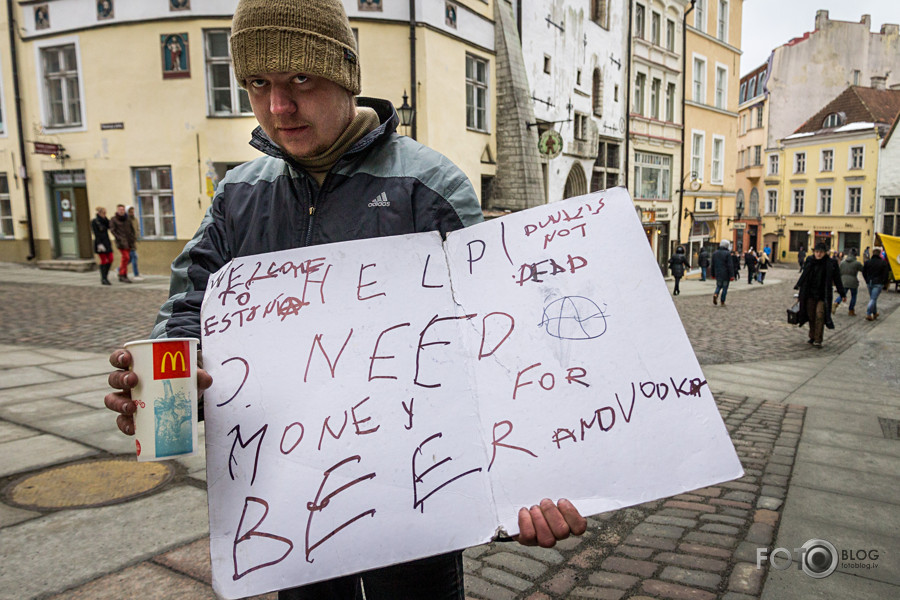 WELCOME
TO
ESTONIA
HELP!
PUNK IS
NOT
DEAD
J NEED
MONEY FOR
BEER AND VODKA
adidas
M
FOTO BLOG
fotoblog.lv